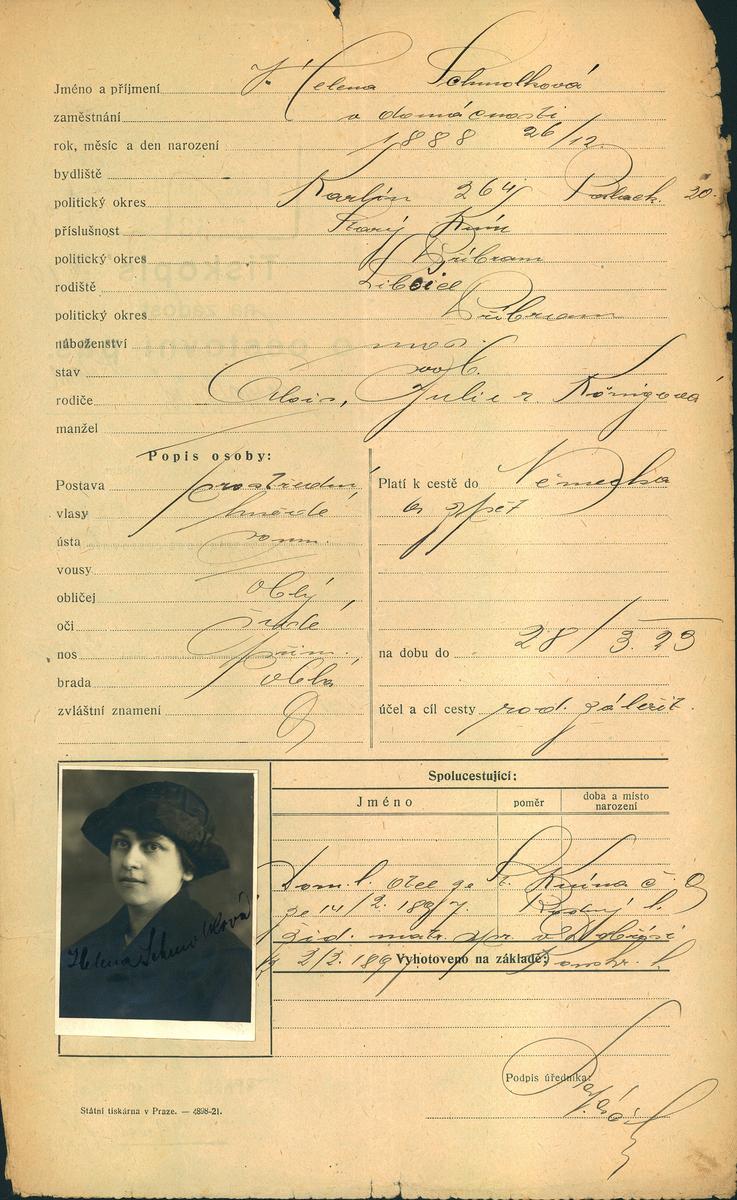 Jméno a příjmení Helena Schmolková
zaměstnání v domácnosti
rok, měsíc a den narození 1888 26/12.
bydliště
politický okres Karlín 264 Palack. 20.
příslušnost Starý Knín
politický okres Příbram
rodiště
politický okres Příbram
náboženství mos.
stav svob.
rodiče Alois, Julie r. Königová
manžel
Popis osoby:
Postava prostřední
vlasy hnědé
ústa
vousy
obličej oblý
oči šedé
nos přim.
brada oblá
zvláštní znamení
Platí k cestě do Německa
a zpět
na dobu do 28/3. 23
účel a cíl cesty rod. záležit.
Spolucestující:
Jméno
poměr
doba a místo narození
Dom. l. otce ze St. Knína č.
ze 14/2. 1897. Rodný l.
žid. matr. v Dobříši
2/2. 1897
Vyhotoveno na základě:
Helena Schmolková
Podpis úředníka:
Státní tiskárna v Praze. — 4898-21.